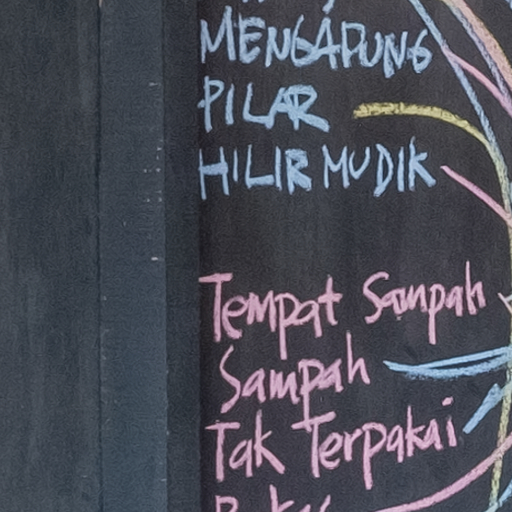 MENGAPUNG
PILAR
HILIR MUDIK
Tempat Sampah
Sampah
Tak Terpakai